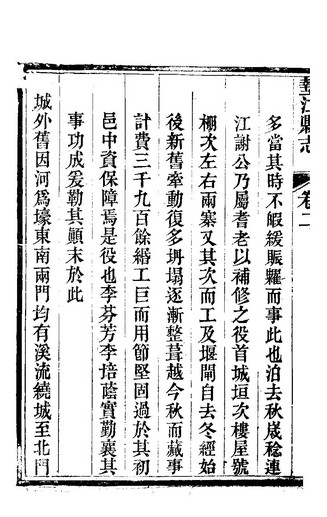 墊江縣志 卷二
多當其時不暇緩賑糶而事此也洎去秋歲稔連
江謝公乃屬耆老以補修之役首城垣次樓屋號
棚次左右兩寨又其次而工及堰閘自去冬經始
後新舊牽動復多坍塌逐漸整葺越今秋而蕆事
計費三千九百餘緡工巨而用節堅固過於其初
邑中資保障焉是役也李芬芳李培蔭實勤襄其
事功成爰勒其顛末於此
城外舊因河爲壕東南兩門均有溪流繞城至北門